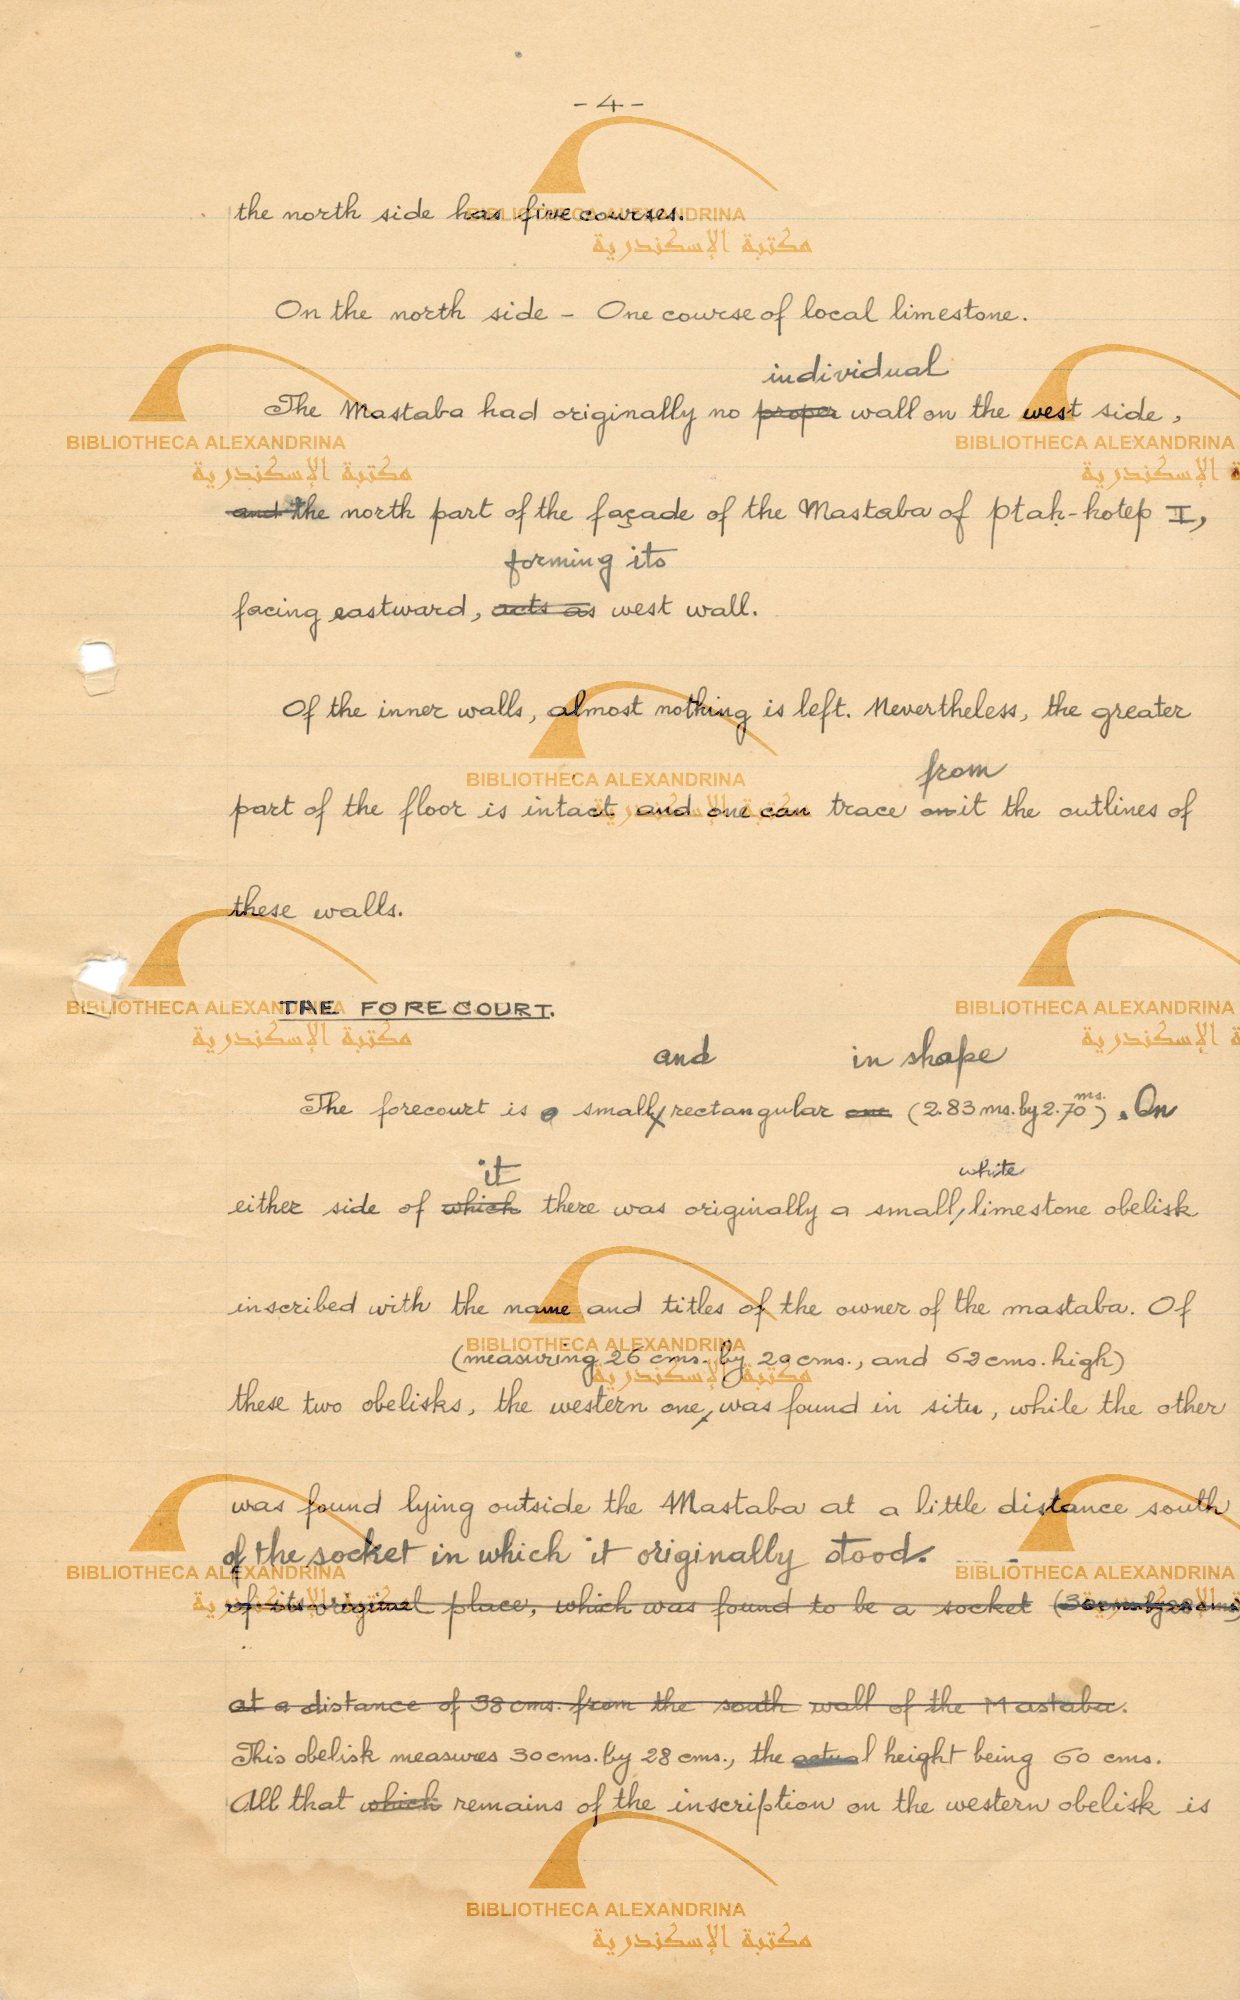 - 4 -
the north side has five courses.
On the north side - One course of local limestone.
individual
The Mastaba had originally no proper wall on the west side,
and the north part of the façade of the Mastaba of Ptaḥ-ḥotep I,
forming its
facing eastward, acts as west wall.
Of the inner walls, almost nothing is left. Nevertheless, the greater
from
part of the floor is intact and one can trace on it the outlines of
these walls.
THE FORECOURT.
and in shape
The forecourt is a small rectangular one (2.83 ms. by 2.70 ms.). On
it white
either side of which there was originally a small, limestone obelisk
inscribed with the name and titles of the owner of the mastaba. Of
(measuring 26 cms. by 29 cms., and 62 cms. high)
these two obelisks, the western one, was found in situ, while the other
was found lying outside the Mastaba at a little distance south
of the socket in which it originally stood.
of its original place, which was found to be a socket
at a distance of 38 cms. from the south wall of the Mastaba.
This obelisk measures 30 cms. by 28 cms., the actual height being 60 cms.
All that which remains of the inscription on the western obelisk is
BIBLIOTHECA ALEXANDRINA
مكتبة الإسكندرية